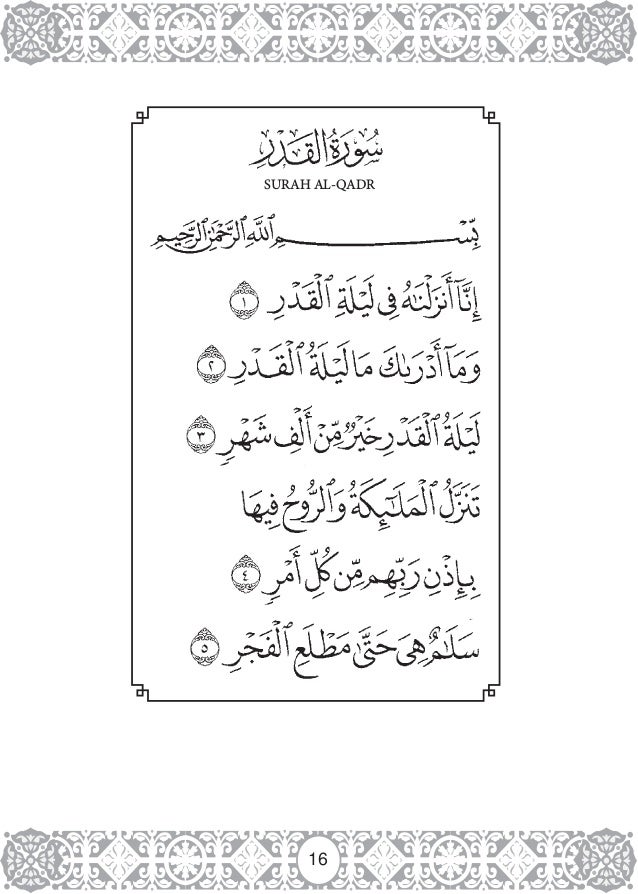 سُورَةُ القَدْرِ
SURAH AL-QADR
بِسْمِ ٱللَّهِ ٱلرَّحْمَٰنِ ٱلرَّحِيمِ
إِنَّآ أَنزَلْنَٰهُ فِى لَيْلَةِ ٱلْقَدْرِ ١
وَمَآ أَدْرَىٰكَ مَا لَيْلَةُ ٱلْقَدْرِ ٢
لَيْلَةُ ٱلْقَدْرِ خَيْرٌ مِّنْ أَلْفِ شَهْرٍ ٣
تَنَزَّلُ ٱلْمَلَٰٓئِكَةُ وَٱلرُّوحُ فِيهَا
بِإِذْنِ رَبِّهِم مِّن كُلِّ أَمْرٍ ٤
سَلَٰمٌ هِىَ حَتَّىٰ مَطْلَعِ ٱلْفَجْرِ ٥
16